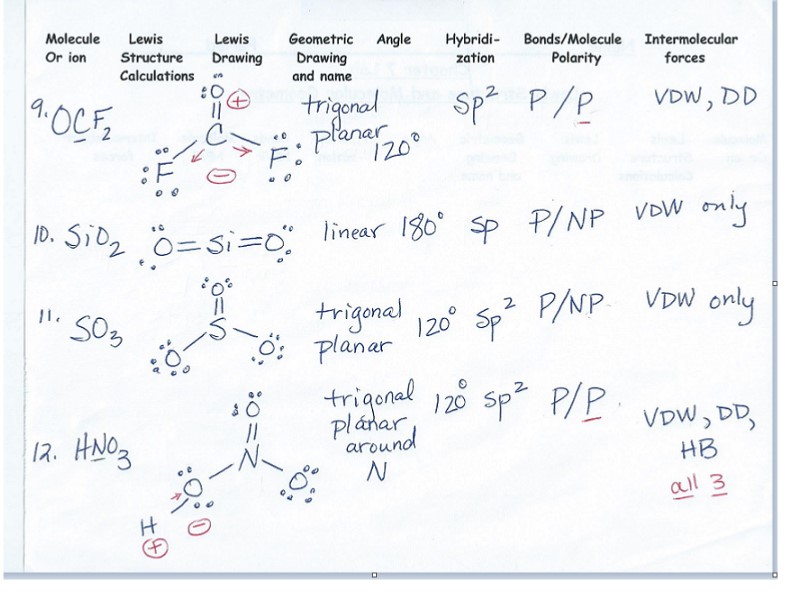 Molecule Or ion Lewis Structure Calculations Lewis Drawing Geometric Drawing and name Angle Hybridi-zation Bonds/Molecule Polarity Intermolecular forces
9. OCF2 O C F F + − trigonal planar 120° sp² P/P VDW, DD
10. SiO2 O=Si=O linear 180° sp P/NP VDW only
11. SO3 O S O O trigonal planar 120° sp² P/NP VDW only
12. HNO3 O N O O H + − trigonal planar around N 120° sp² P/P VDW, DD, HB all 3